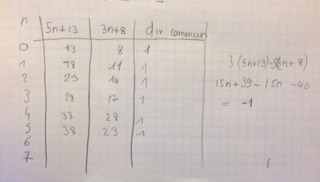 n 5n+13 3n+8 div commun
0 13 8 1
1 18 11 1
2 23 14 1
3 28 17 1
4 33 28 1
5 38 23 1
6
7
3(5n+13)-5(3n+8)
15n+39-15n-40
= -1